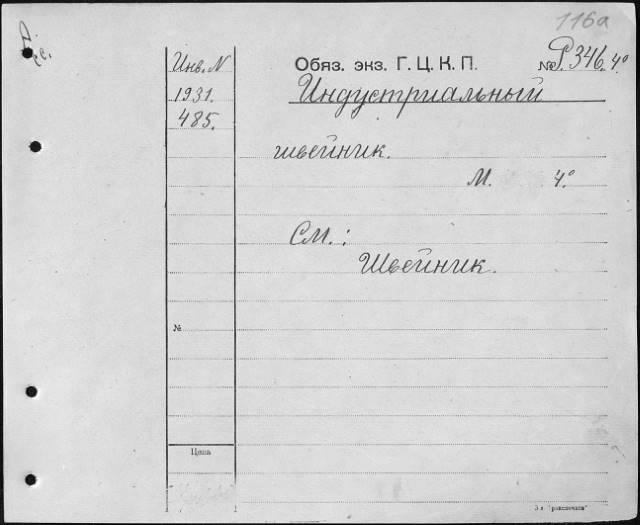 116а
Инв. N
1931.
485.
Обяз. экз. Г. Ц. К. П.
№ Р346. 4°
Индустриальный
швейник.
М. 4°
См.:
Швейник.
№
Цена